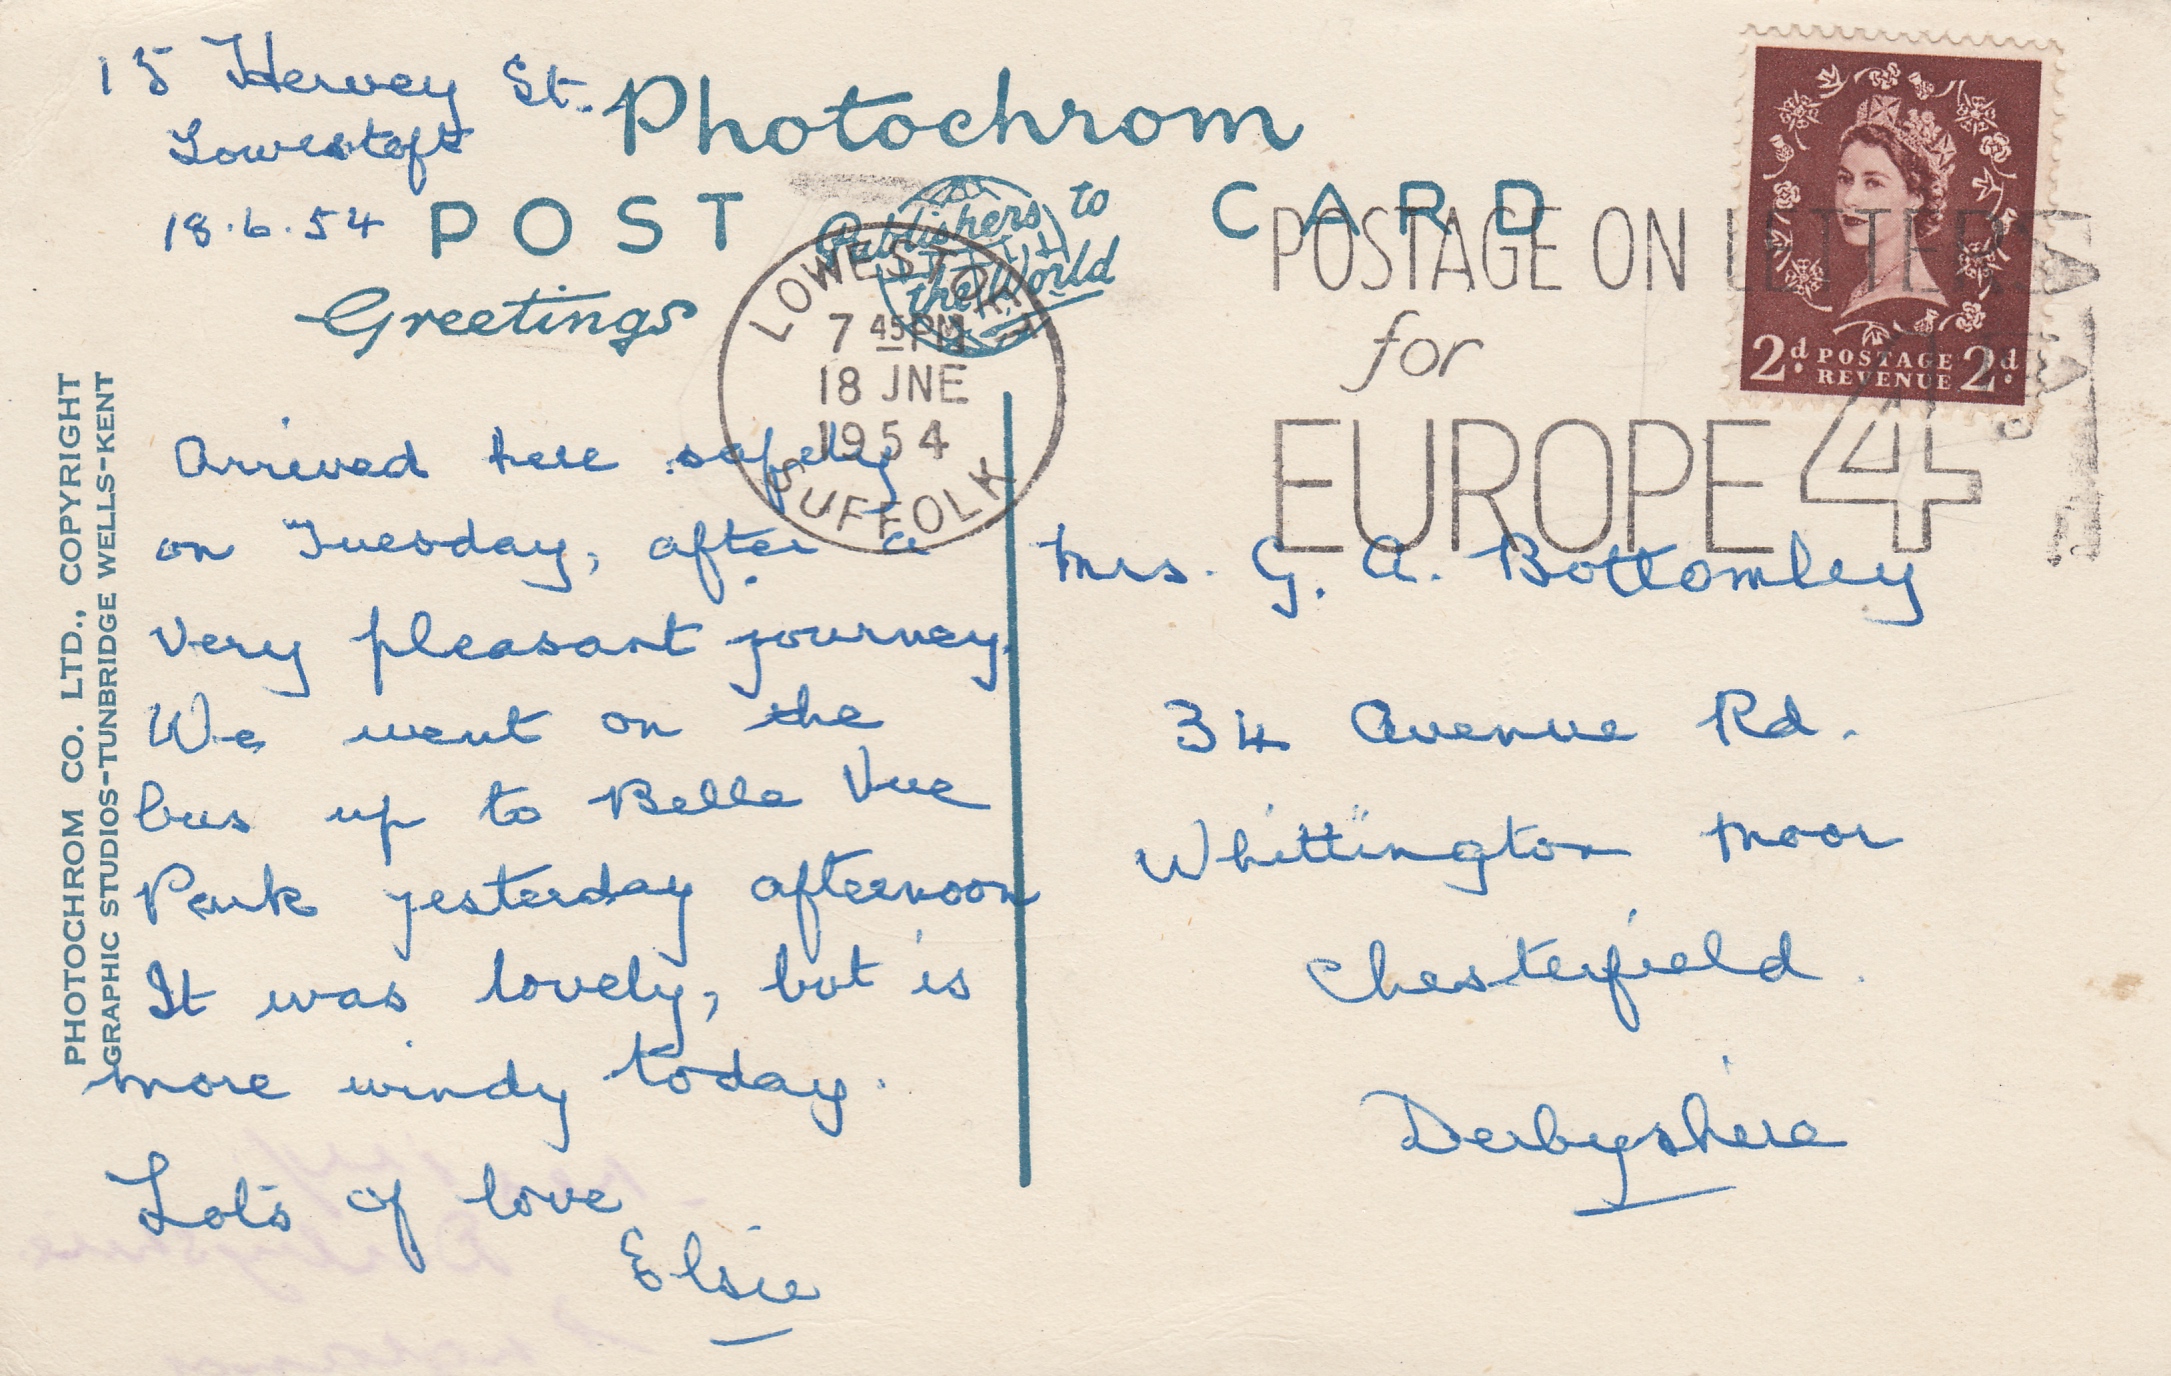 15 Hervey St.
Lowestoft
18.6.54
Photochrom
POST CARD
Publishers to
the World
Greetings
LOWESTOFT
7 45PM
18 JNE
1954
SUFFOLK
POSTAGE ON LETTERS
for
EUROPE 4d.
2d. POSTAGE 2d.
REVENUE
PHOTOCHROM CO. LTD., COPYRIGHT
GRAPHIC STUDIOS-TUNBRIDGE WELLS-KENT
Arrived here safely
on Tuesday, after a
very pleasant journey.
We went on the
bus up to Belle Vue
Park yesterday afternoon
It was lovely, but is
more windy today.
Lots of love
Elsie
Mrs. G. A. Bottomley
34 Avenue Rd.
Whittington Moor
Chesterfield.
Derbyshire